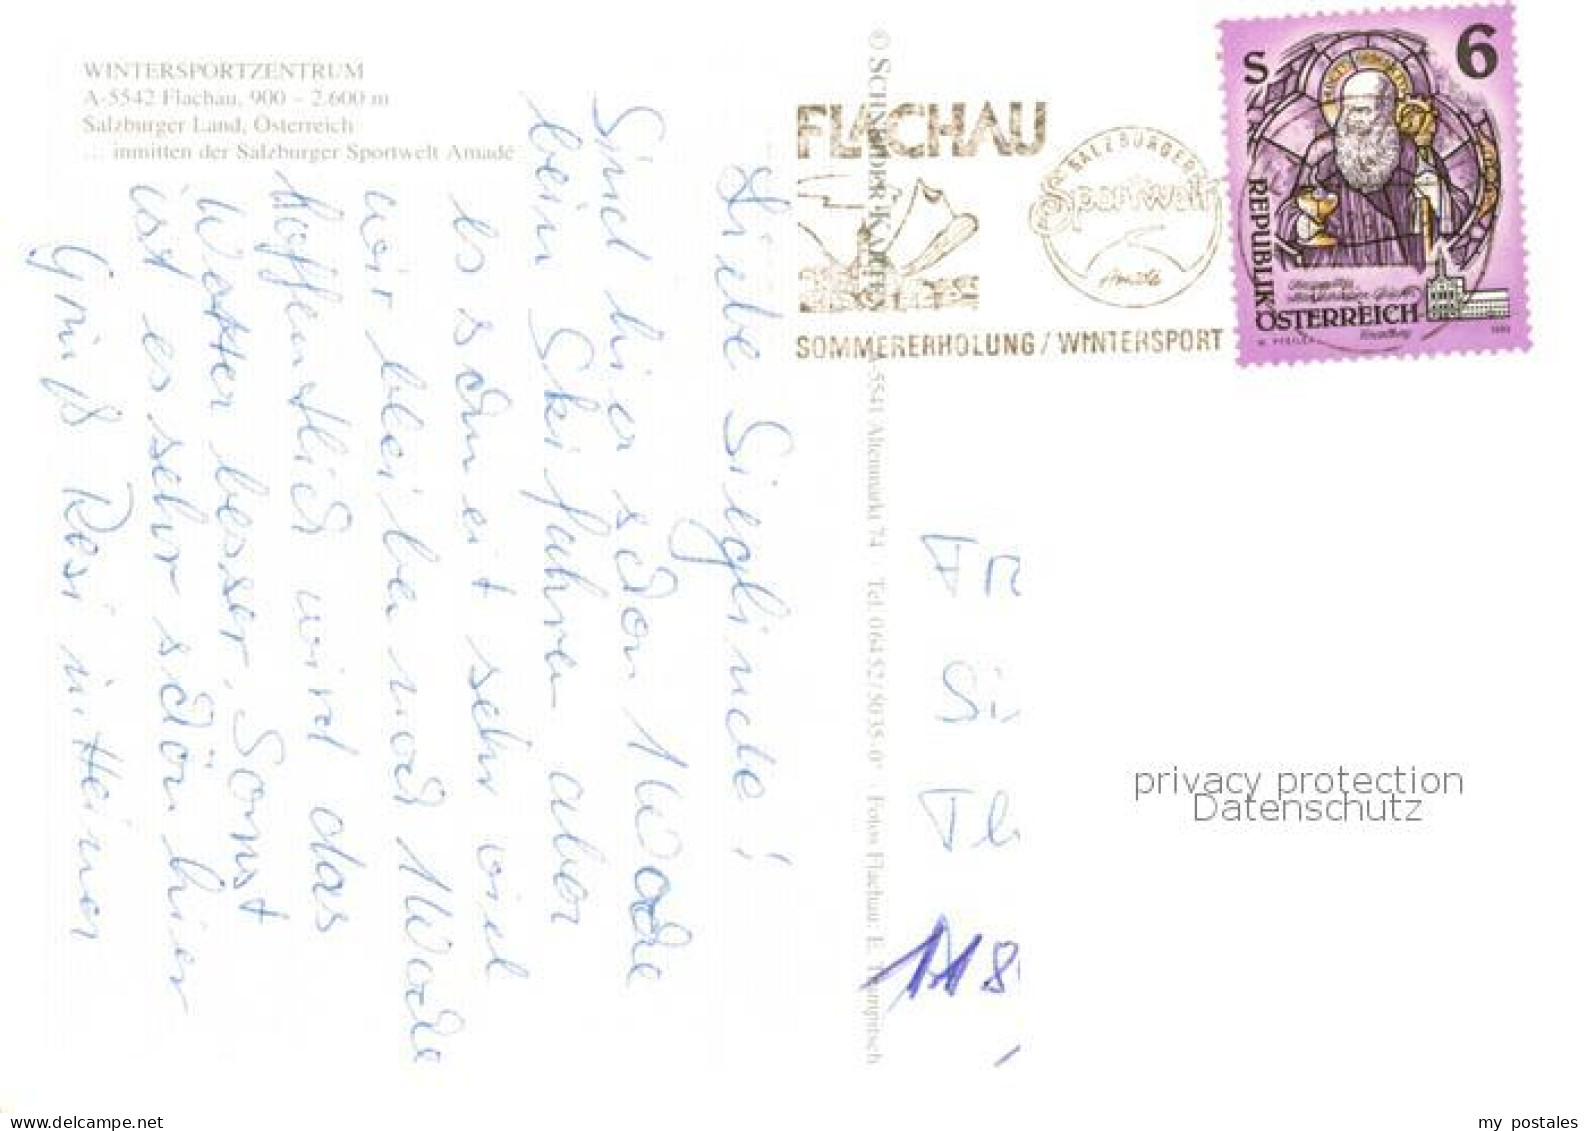 WINTERSPORTZENTRUM
A-5542 Flachau, 900 - 2.600 m
Salzburger Land, Österreich
... inmitten der Salzburger Sportwelt Amadé
Liebe Sieglinde!
Sind hier schon 1 Woche
beim Skifahren aber
es schneit sehr viel
wir bleiben noch 1 Woche
hoffentlich wird das
Wetter besser. Sonst
ist es sehr schön hier
Gruß Resi u. Heiner
© SCHNEIDER KARTEN
A-5541 Altenmarkt 74 · Tel. 06452/5035-0* · Fotos Flachau: E.
FLACHAU
SALZBURGER
Sportwelt
Amadé
SOMMERERHOLUNG / WINTERSPORT
S 6
REPUBLIK
ÖSTERREICH
Fr
Si
Th
A 18
privacy protection
Datenschutz
www.delcampe.net
my_postales